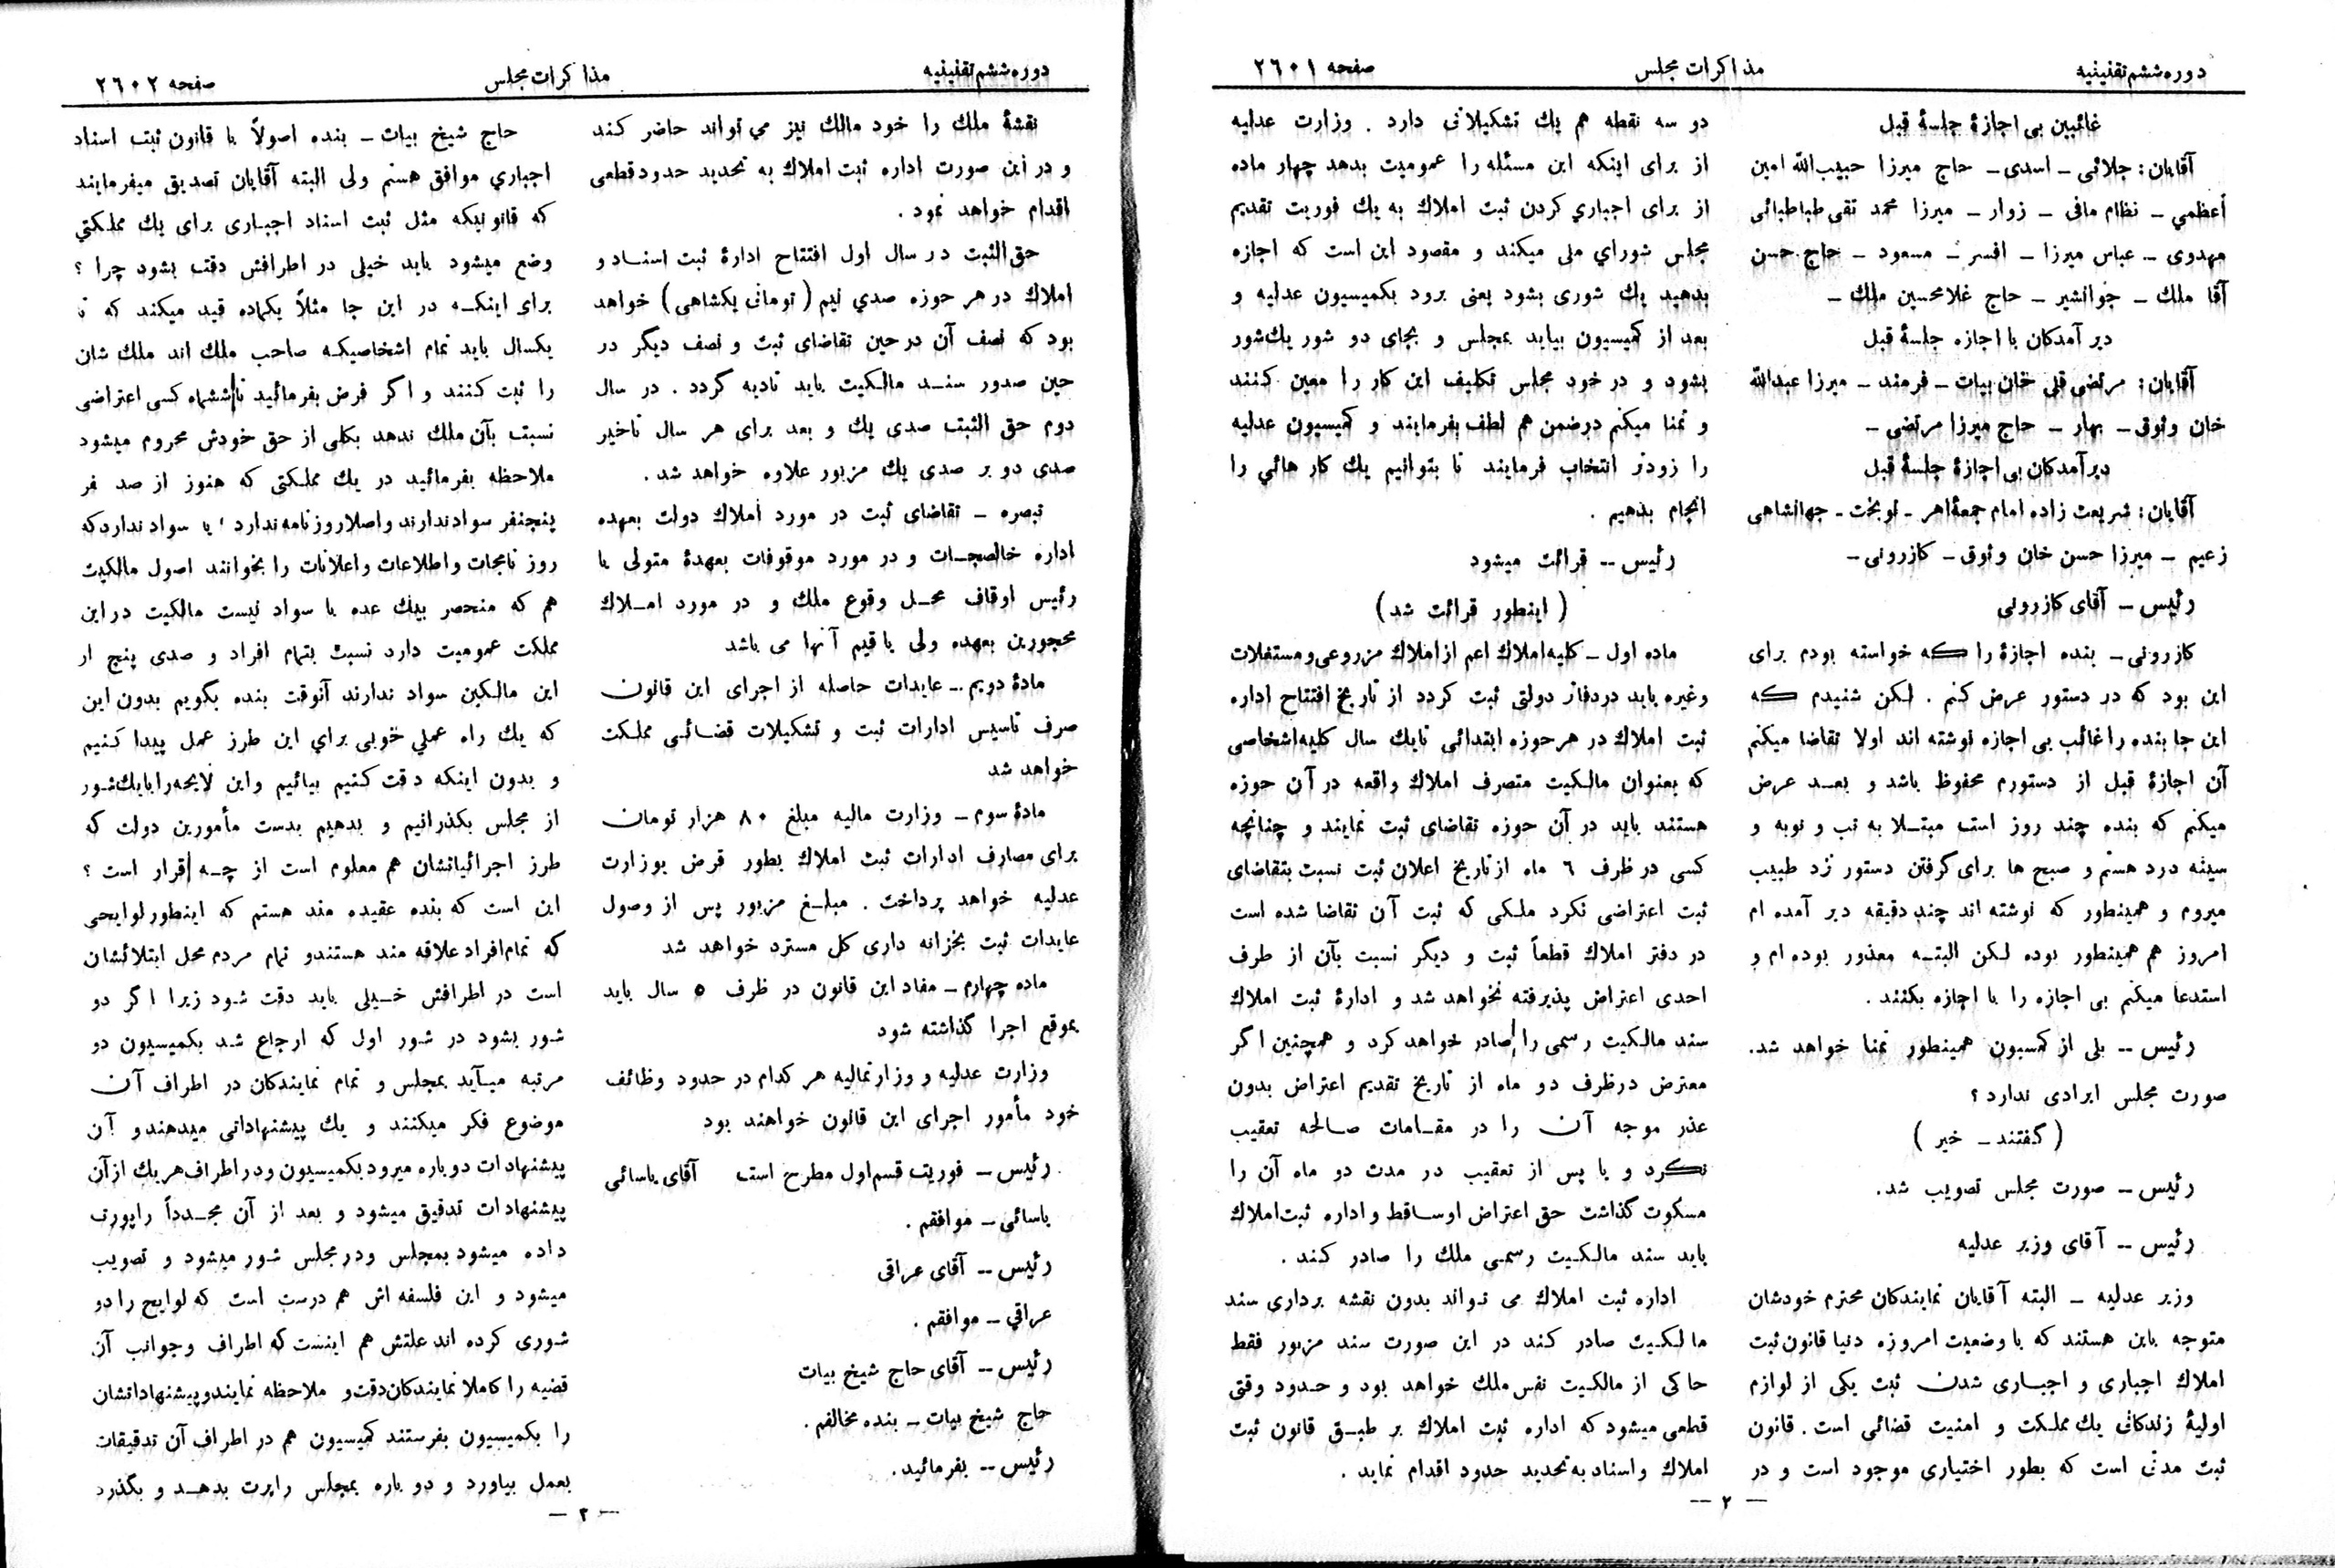 دوره ششم تقنینیه
مذاکرات مجلس
صفحه ۲۶۰۱
غائبین بی اجازهٔ جلسهٔ قبل
آقایان: جلائی ـ اسدی ـ حاج میرزا حبیب‌الله امین
أعظمي ـ نظام مافی ـ زوار ـ میرزا محمد تقی طباطبائی
مهدوی ـ عباس میرزا ـ افسر ـ مسعود ـ حاج حسن
آقا ملك ـ جوانشیر ـ حاج غلامحسین ملك ـ
دیر آمدکان با اجازه جلسهٔ قبل
آقایان: مرتضی قلی خان بیات ـ فرمند ـ میرزا عبدالله
خان وثوق ـ بهار ـ حاج میرزا مرتضی ـ
دیر آمدکان بی اجازهٔ جلسهٔ قبل
آقایان: شریعت زاده امام جمعهٔ اهر ـ نوبخت ـ جهانشاهی
زعیم ـ میرزا حسن خان وثوق ـ کازرونی ـ
رئیس ـ آقای کازرونی
کازرونی ـ بنده اجازهٔ را که خواسته بودم برای
این بود که در دستور عرض کنم . لکن شنیدم که
این جا بنده را غائب بی اجازه نوشته اند اولا تقاضا میکنم
آن اجازهٔ قبل از دستورم محفوظ باشد و بعد عرض
میکنم که بنده چند روز است مبتلا به تب و نوبه و
سینه درد هستم و صبح ها برای گرفتن دستور نزد طبیب
میروم و همینطور که نوشته اند چند دقیقه دیر آمده ام
امروز هم همینطور بوده لکن البته معذور بوده ام و
استدعا میکنم بی اجازه را با اجازه بکنند .
رئیس ـ بلی از کمسیون همینطور تمنا خواهد شد.
صورت مجلس ایرادی ندارد ؟
( گفتند ـ خیر )
رئیس ـ صورت مجلس تصویب شد.
رئیس ـ آقای وزیر عدلیه
وزیر عدلیه ـ البته آقایان نمایندکان محترم خودشان
متوجه باین هستند که با وضعیت امروزه دنیا قانون ثبت
املاك اجباری و اجباری شدن ثبت یکی از لوازم
اولیهٔ زندکانی یك مملکت و امنیت قضائی است . قانون
ثبت مدتی است که بطور اختیاری موجود است و در
دو سه نقطه هم یك تشکیلاتی دارد . وزارت عدلیه
از برای اینکه این مسئله را عمومیت بدهد چهار ماده
از برای اجباري کردن ثبت املاك به یك فوریت تقدیم
مجلس شورای ملی میکند و مقصود این است که اجازه
بدهید یك شوری بشود یعنی برود بکمیسیون عدلیه و
بعد از کمیسیون بیاید بمجلس و بجای دو شور یك شور
بشود و در خود مجلس تکلیف این کار را معین کنند
و تمنا میکنم در ضمن هم لطف بفرمایند و کمیسیون عدلیه
را زودتر انتخاب فرمایند تا بتوانیم یك کار هائی را
انجام بدهیم .
رئیس ـ قرائت میشود
( اینطور قرائت شد )
ماده اول ـ کلیه املاك اعم از املاك مزروعی و مستغلات
وغیره باید در دفاتر دولتی ثبت کردد از تاریخ افتتاح اداره
ثبت املاك در هر حوزه ابتدائی تا یك سال کلیه اشخاصی
که بعنوان مالکیت متصرف املاك واقعه در آن حوزه
هستند باید در آن حوزه تقاضای ثبت نمایند و چنانچه
کسی در ظرف ۶ ماه از تاریخ اعلان ثبت نسبت بتقاضای
ثبت اعتراضی نکرد ملکی که ثبت آن تقاضا شده است
در دفتر املاك قطعاً ثبت و دیگر نسبت بآن از طرف
احدی اعتراض پذیرفته نخواهد شد و ادارهٔ ثبت املاك
سند مالکیت رسمی را صادر خواهد کرد و همچنین اگر
معترض درظرف دو ماه از تاریخ تقدیم اعتراض بدون
عذر موجه آن را در مقامات صالحه تعقیب
نکرد و یا پس از تعقیب در مدت دو ماه آن را
مسکوت گذاشت حق اعتراض او ساقط و اداره ثبت املاك
باید سند مالکیت رسمی ملك را صادر کند .
اداره ثبت املاك می تواند بدون نقشه برداری سند
مالکیت صادر کند در این صورت سند مزبور فقط
حاکی از مالکیت نفس ملك خواهد بود و حدود وقتی
قطعی میشود که اداره ثبت املاك بر طبق قانون ثبت
املاك و اسناد به تحدید حدود اقدام نماید .
ـ ۲ ـ
دوره ششم تقنینیه
مذاکرات مجلس
صفحه ۲۶۰۲
نقشهٔ ملك را خود مالك نیز می تواند حاضر کند
و در این صورت اداره ثبت املاك به تحدید حدود قطعی
اقدام خواهد نمود .
حق الثبت در سال اول افتتاح ادارهٔ ثبت اسناد و
املاك در هر حوزه صدي نیم ( تومانی یکشاهی ) خواهد
بود که نصف آن در حین تقاضای ثبت و نصف دیگر در
حین صدور سند مالکیت باید تادیه گردد . در سال
دوم حق الثبت صدی یك و بعد برای هر سال تاخیر
صدی دو بر صدی یك مزبور علاوه خواهد شد .
تبصره ـ تقاضای ثبت در مورد أملاك دولت بعهده
اداره خالصجات و در مورد موقوفات بعهدهٔ متولی یا
رئیس اوقاف محل وقوع ملك و در مورد املاك
محجورین بعهده ولی یا قیم آنها می باشد
مادهٔ دویم ـ عایدات حاصله از اجرای این قانون
صرف تاسیس ادارات ثبت و تشکیلات قضائی مملکت
خواهد شد
مادهٔ سوم ـ وزارت مالیه مبلغ ۸۰ هزار تومان
برای مصارف ادارات ثبت املاك بطور قرض بوزارت
عدلیه خواهد پرداخت . مبلغ مزبور پس از وصول
عایدات ثبت بخزانه داری کل مسترد خواهد شد
ماده چهارم ـ مفاد این قانون در ظرف ۵ سال باید
بموقع اجرا گذاشته شود
وزارت عدلیه و وزارتمالیه هر کدام در حدود وظائف
خود مأمور اجرای این قانون خواهند بود
رئیس ـ فوریت قسم اول مطرح است آقای یاسائی
یاسائی ـ موافقم .
رئیس ـ آقای عراقی
عراقي ـ موافقم .
رئیس ـ آقای حاج شیخ بیات
حاج شیخ بیات ـ بنده مخالفم .
رئیس ـ بفرمائید.
حاج شیخ بیات ـ بنده اصولاً با قانون ثبت اسناد
اجباري موافق هستم ولی البته آقایان تصدیق میفرمایند
که قانونیکه مثل ثبت اسناد اجباری برای یك مملکتي
وضع میشود باید خیلی در اطرافش دقت بشود چرا ؟
برای اینکه در این جا مثلاً یکماده قید میکند که تا
یکسال باید تمام اشخاصیکه صاحب ملك اند ملك شان
را ثبت کنند و اگر فرض بفرمائید تا ششماه کسی اعتراضی
نسبت بآن ملك ندهد بکلی از حق خودش محروم میشود
ملاحظه بفرمائید در یك مملکتی که هنوز از صد فر
پنجنفر سواد ندارند و اصلا روزنامه ندارد ، یا سواد ندارد که
روز نامجات و اطلاعات و اعلانات را بخوانند اصول مالکیت
هم که منحصر بیك عده با سواد نیست مالکیت در این
مملکت عمومیت دارد نسبت بتمام افراد و صدی پنج از
این مالکین سواد ندارند آنوقت بنده بگویم بدون این
که یك راه عملي خوبی براي این طرز عمل پیدا کنیم
و بدون اینکه دقت کنیم بیائیم و این لایحه را با یك شور
از مجلس بکذرانیم و بدهیم بدست مأمورین دولت که
طرز اجرائیاتشان هم معلوم است از چه قرار است ؟
این است که بنده عقیده مند هستم که اینطور لوایحی
که تمام افراد علاقه مند هستندو تمام مردم محل ابتلائشان
است در اطرافش خیلی باید دقت شود زیرا اگر دو
شور بشود در شور اول که ارجاع شد بکمیسیون دو
مرتبه میآید بمجلس و تمام نمایندکان در اطراف آن
موضوع فکر میکنند و یك پیشنهاداتی میدهندو آن
پیشنهادات دوباره میرود بکمیسیون و در اطراف هر یك از آن
پیشنهادات تدقیق میشود و بعد از آن مجدداً راپورت
داده میشود بمجلس ودر مجلس شور میشود و تصویب
میشود و این فلسفه اش هم درست است که لوایح را دو
شوری کرده اند علتش هم اینست که اطراف و جوانب آن
قضیه را کاملا نمایندکان دقت و ملاحظه نمایند و پیشنهاداتشان
را بکمیسیون بفرستند کمیسیون هم در اطراف آن تدقیقات
بعمل بیاورد و دو باره بمجلس راپرت بدهد و بگذرد
ـ ۳ ـ